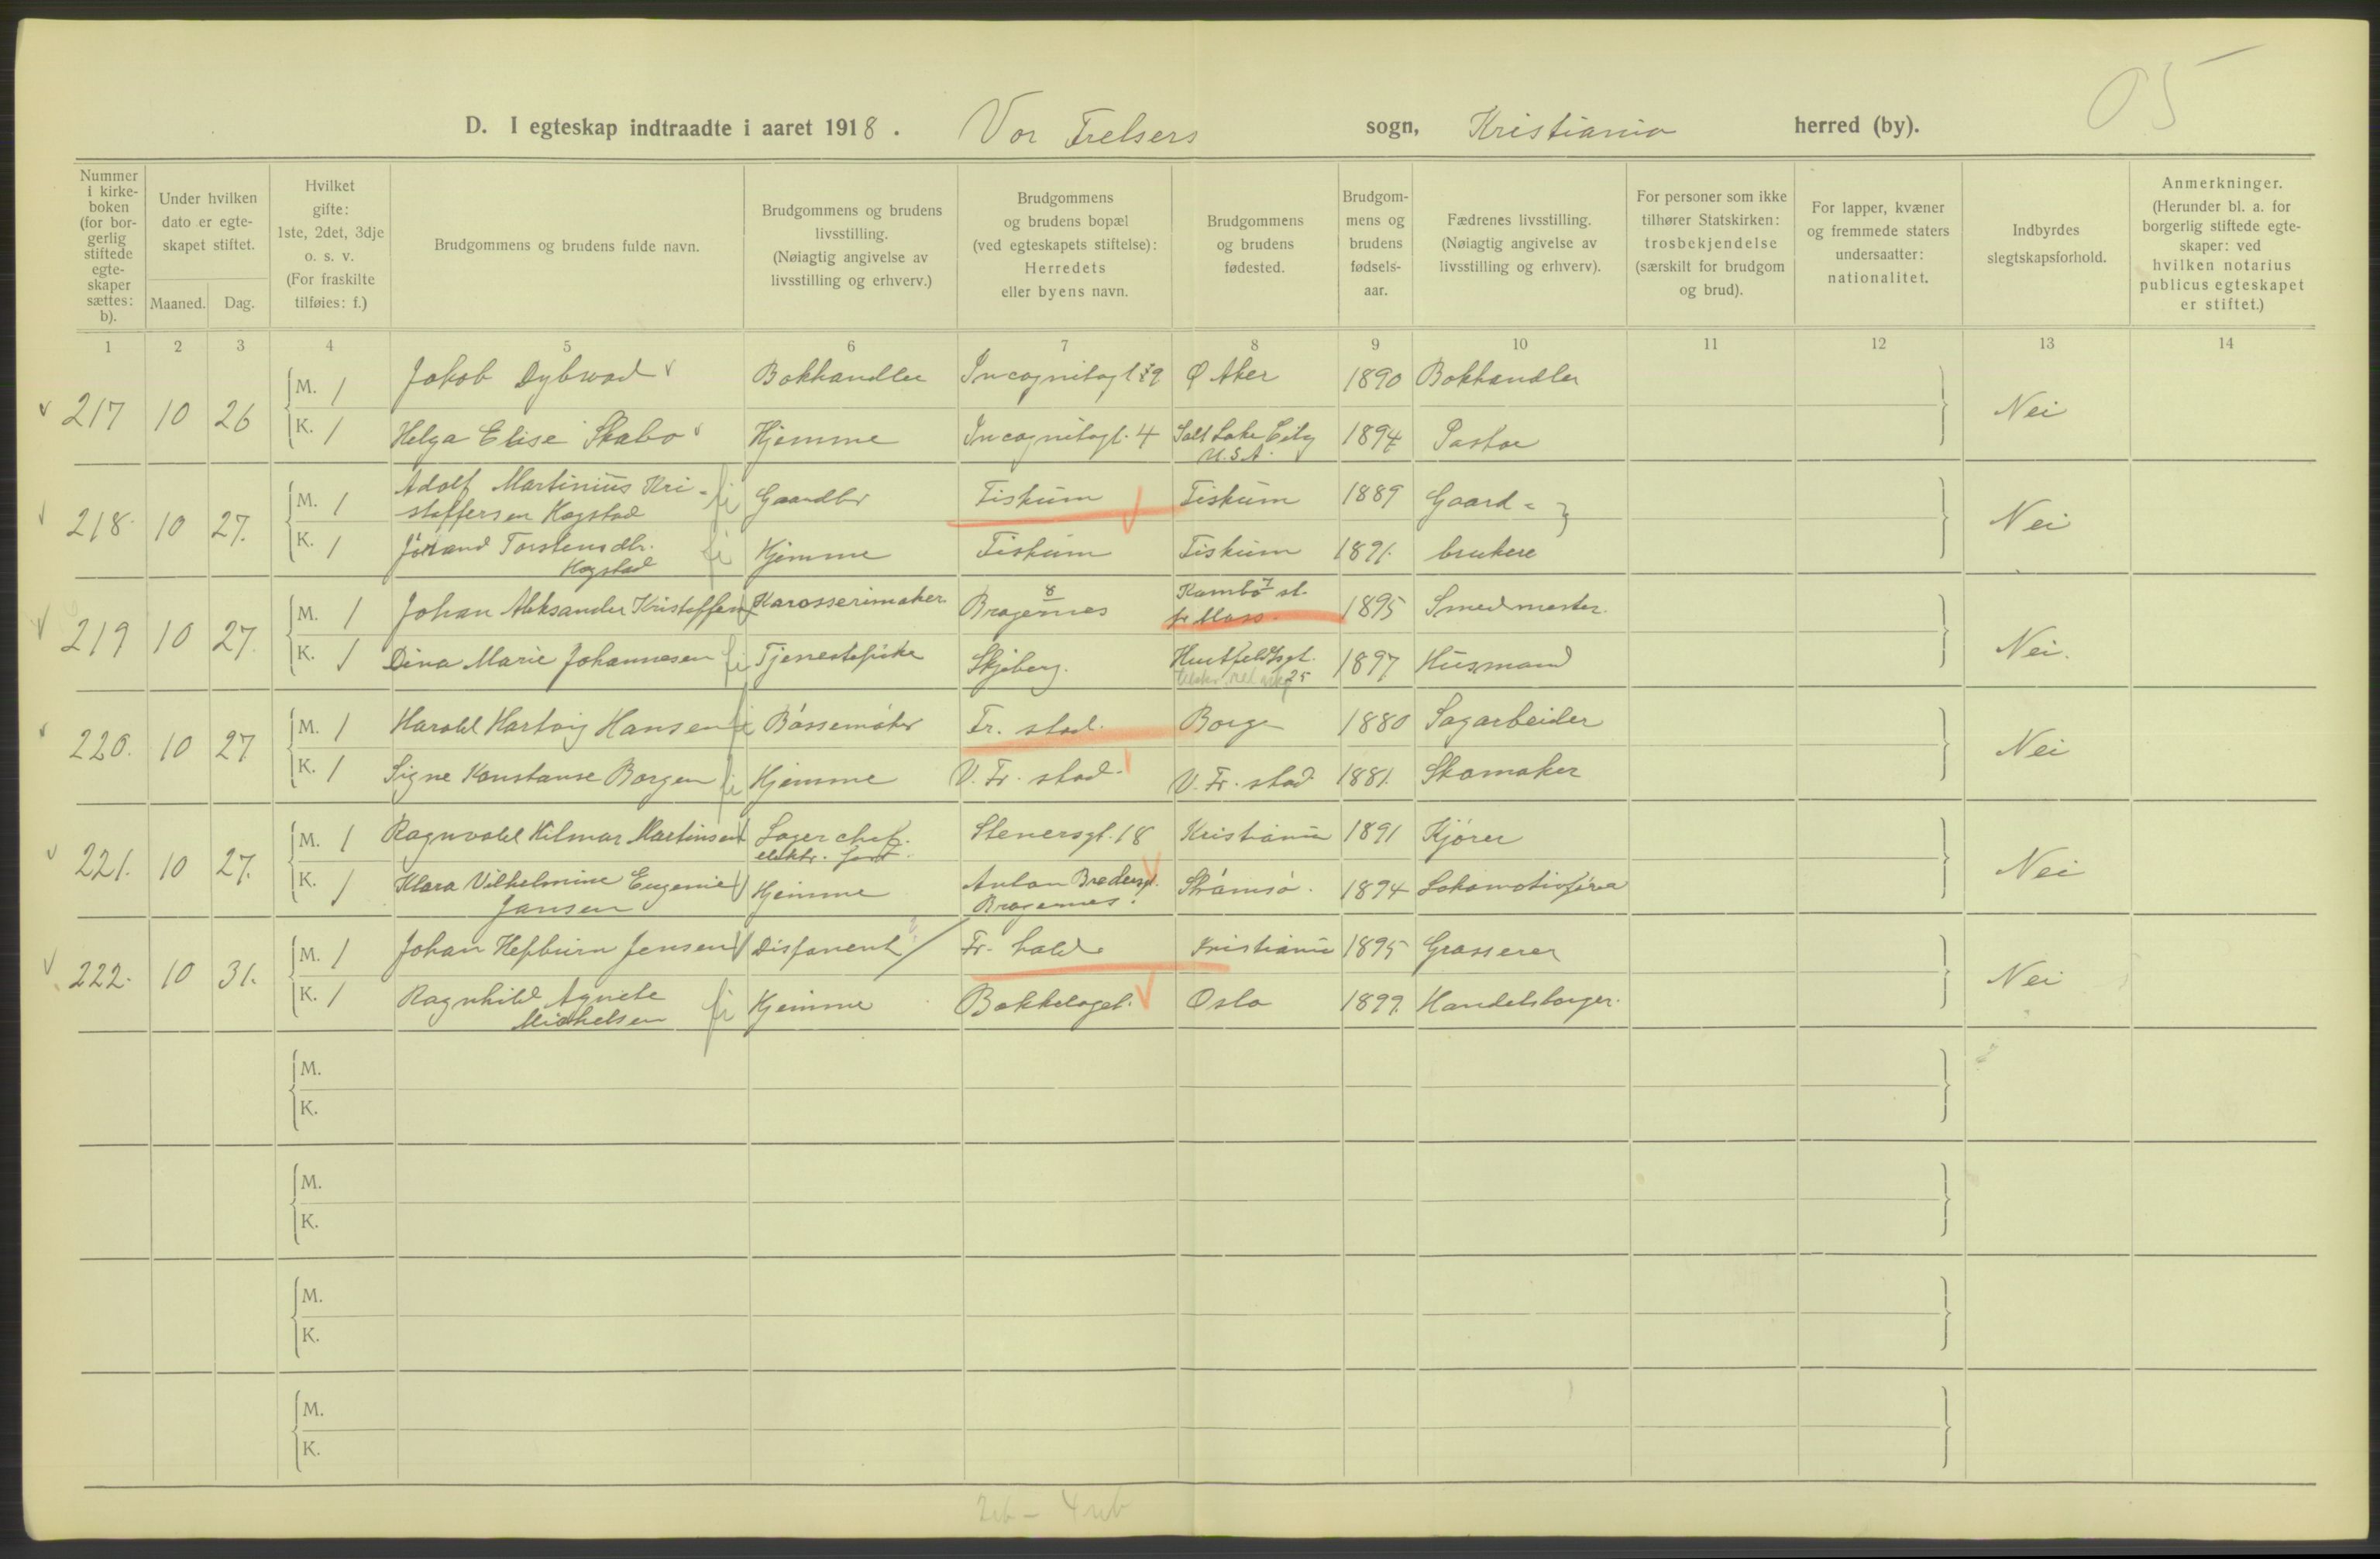 05
D. I egteskap indtraadte i aaret 1918. Vor Frelsers sogn, Kristiania herred (by).
Nummer i kirkeboken (for borgerlig stiftede egteskaper sættes: b).
Under hvilken dato er egteskapet stiftet.
Maaned. Dag.
Hvilket gifte: 1ste, 2det, 3dje o. s. v. (For fraskilte tilføies: f.)
Brudgommens og brudens fulde navn.
Brudgommens og brudens livsstilling. (Nøiagtig angivelse av livsstilling og erhverv.)
Brudgommens og brudens bopæl (ved egteskapets stiftelse): Herredets eller byens navn.
Brudgommens og brudens fødested.
Brudgommens og brudens fødselsaar.
Fædrenes livsstilling. (Nøiagtig angivelse av livsstilling og erhverv).
For personer som ikke tilhører Statskirken: trosbekjendelse (særskilt for brudgom og brud).
For lapper, kvæner og fremmede staters undersaatter: nationalitet.
Indbyrdes slegtskapsforhold.
Anmerkninger. (Herunder bl. a. for borgerlig stiftede egteskaper: ved hvilken notarius publicus egteskapet er stiftet.)
1 2 3 4 5 6 7 8 9 10 11 12 13 14
217 10 26 M. 1 Jakob Dybwad Bokhandler Incognitogt Ø Aker 1890 Bokhandler Nei
K. 1 Helga Elise Skabo Hjemme Incognitogt. 4 Salt Lake City U.S.A. 1894 Pastor
218. 10 27. M. 1 Adolf Martinius Kristoffersen Kogstad Gaardbr Fiskum Fiskum 1889 Gaard- Nei
K. 1 Jörand Torstensdtr. Kogstad Hjemme Fiskum Fiskum 1891. brukere
219 10 27. M. 1 Johan Aleksander Kristoffersen Karosserimaker Bragernes Kambo st. pr Moss. 1895 Smedmester. Nei.
K. 1 Dina Marie Johannesen Tjenestepike Skjeberg. 25 1897 Husmand
220. 10 27 M. 1 Harald Hartvig Hansen Bössemaker Fr. stad. Borge 1880 Sagarbeider Nei
K. 1 Signe Konstanse Borgen Hjemme V. Fr. stad. V. Fr. stad 1881. Skomaker
221. 10 27. M. 1 Ragnvald Hilmar Martinsen Lagerchef. elektr. forr. Stenersgt. 18 Kristiania 1891 Kjörer Nei
K. 1 Klara Vilhelmine Eugenie Jansen Hjemme Anton Bredersgt. Bragernes. Strömsö. 1894 Lokomotivförer
222. 10 31. M. 1 Johan Hepburn Jensen Disponent Fr. hald Kristiania 1895 Grosserer Nei
K. 1 Ragnhild Agnete Michelsen Hjemme Bekkelaget. Oslo 1899. Handelsborger.
M.
K.
M.
K.
M.
K.
M.
K.